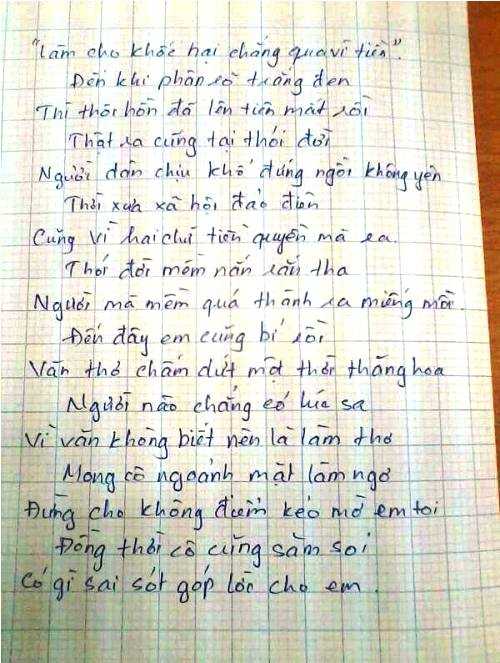 "Làm cho khốc hại chẳng qua vì tiền".
Đến khi phân rõ trắng đen
Thì thôi hồn đã lên tiên mất rồi
Thật ra cũng tại thói đời
Người dân chịu khổ đứng ngồi không yên
Thời xưa xã hội đảo điên
Cũng vì hai chữ tiền quyền mà ra.
Thói đời mềm nắn rắn tha
Người mà mềm quá thành ra miếng mồi.
Đến đây em cũng bí rồi
Văn thơ chấm dứt một thời thăng hoa
Người nào chẳng có lúc sa
Vì văn không biết nên là làm thơ
Mong cô ngoảnh mặt làm ngơ
Đừng cho không điểm kẻo mờ em toi
Đồng thời cô cũng săm soi
Có gì sai sót góp lời cho em.